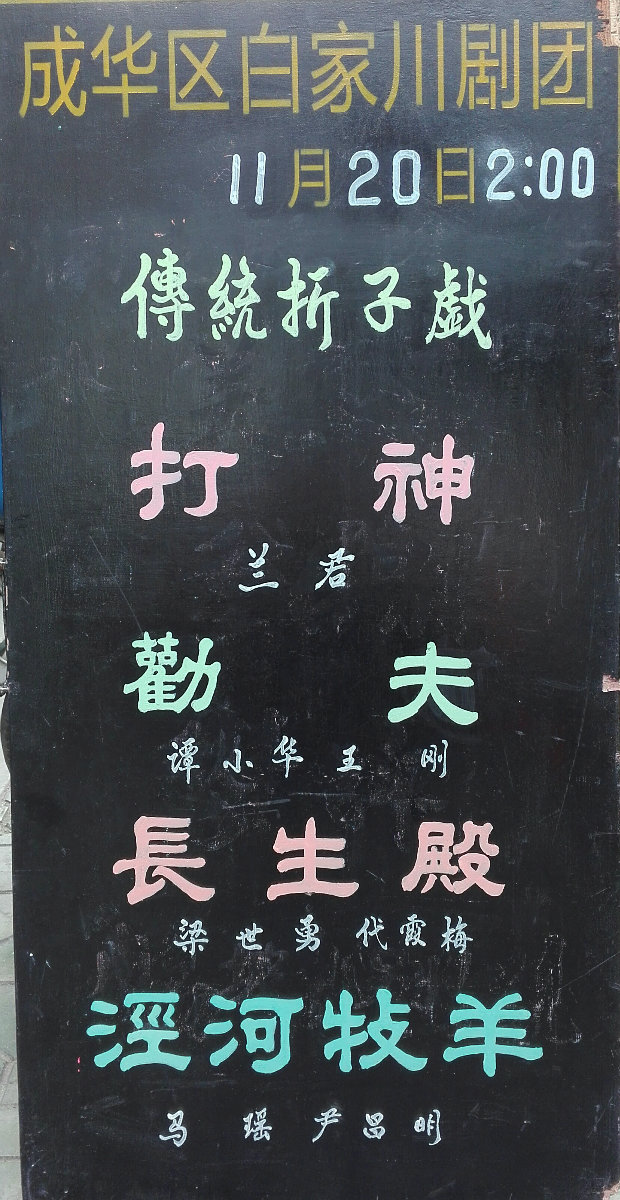 成华区白家川剧团
11月20日2:00
傳統折子戯
打神
兰君
勸夫
谭小华 王刚
長生殿
梁世勇 代霞梅
涇河牧羊
马瑶 尹昌明